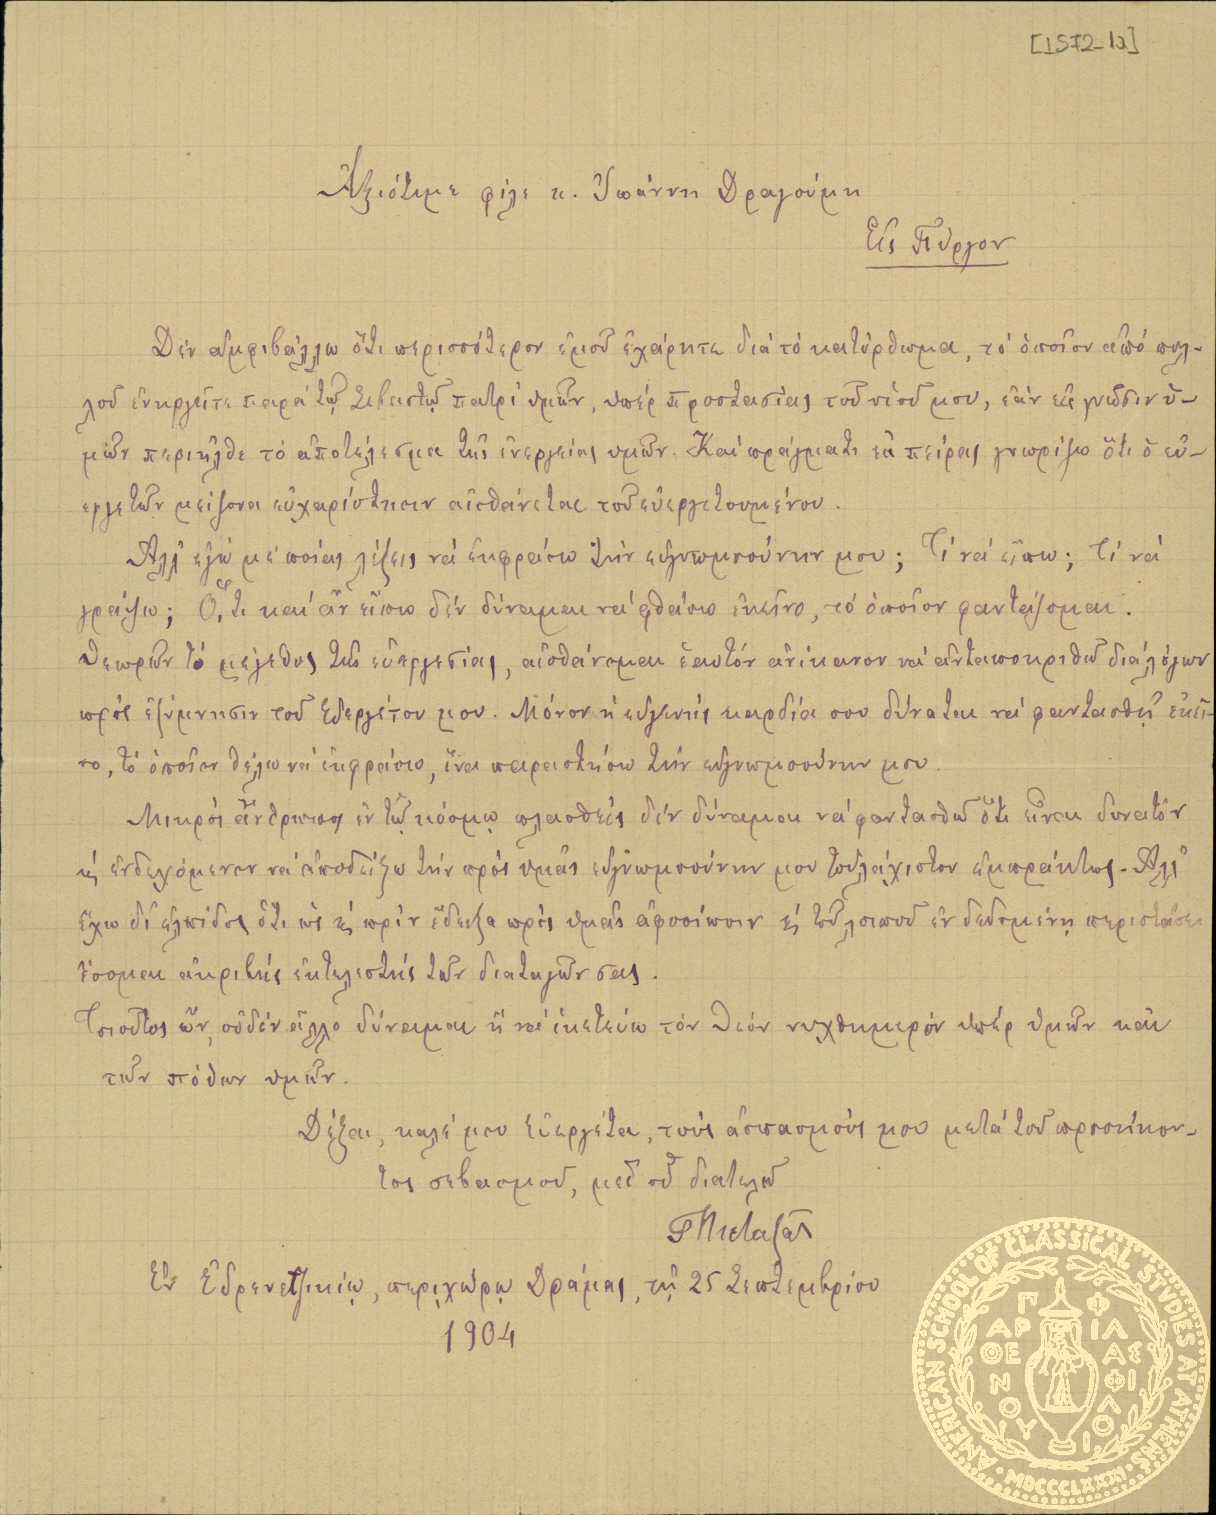 [1572-1α]
Ἀξιότιμε φίλε κ. Ἰωάννη Δραγούμη
Εἰς Πύργον
Δέν ἀμφιβάλλω ὅτι περισσότερον ἐμοῦ ἐχάρητε διά τό κατόρθωμα, τό ὁποῖον ἀπό πολ-
λοῦ ἐνηργεῖτε παρά τῷ Σεβαστῷ πατρί ὑμῶν, ὑπέρ προστασίας τοῦ υἱοῦ μου, ἐάν εἰς γνῶσιν ὑ-
μῶν περιῆλθε τό ἀποτέλεσμα τῆς ἐνεργείας ὑμῶν. Καί πράγματι ἐκ πείρας γνωρίζω ὅτι ὁ εὐ-
εργετῶν μείζονα εὐχαρίστησιν αἰσθάνεται τοῦ εὐεργετουμένου.
Ἀλλ' ἐγώ μέ ποίας λέξεις νά ἐκφράσω τήν εὐγνωμοσύνην μου; Τί νά εἴπω; τί νά
γράψω; Ὅ,τι καί ἄν εἴπω δέν δύναμαι νά φθάσω ἐκεῖνο, τό ὁποῖον φαντάζομαι.
Θεωρῶν τό μέγεθος τῆς εὐεργεσίας, αἰσθάνομαι ἑαυτόν ἀνίκανον νά ἀνταποκριθῶ διά λόγων
πρός ἐξύμνησιν τοῦ Εὐεργέτου μου. Μόνον ἡ εὐγενής καρδία σου δύναται νά φαντασθῇ ἐκεῖ-
νο, τό ὁποῖον θέλω νά ἐκφράσω, ἵνα παραστήσω τήν εὐγνωμοσύνην μου.
Μικρός ἄνθρωπος ἐν τῷ κόσμῳ πλασθείς δέν δύναμαι νά φαντασθῶ ὅτι εἶναι δυνατόν
κ' ἐνδεχόμενον νά ἀποδείξω τήν πρός ὑμᾶς εὐγνωμοσύνην μου τοὐλάχιστον ἐμπράκτως. Ἀλλ'
ἔχω δι' ἐλπίδος ὅτι ὡς κ' πρίν ἔδειξα πρός ὑμᾶς ἀφοσίωσιν κ' τοῦ λοιποῦ ἐν δεδομένῃ περιστάσει
ἔσομαι ἀκριβής ἐκτελεστής τῶν διαταγῶν σας.
Τοιοῦτος ὤν, οὐδέν ἄλλο δύναμαι ἤ νά ἱκετεύω τόν Θεόν νυχθημερόν ὑπέρ ὑμῶν καί
τῶν πόθων ὑμῶν.
Δέξαι, καλέ μου εὐεργέτα, τούς ἀσπασμούς μου μετά τοῦ προσήκον-
τος σεβασμοῦ, μεθ' οὗ διατελῶ
Ἐν Ἐδρενετζικίῳ, περιχώρῳ Δράμας, τῇ 25 Σεπτεμβρίου
1904
AMERICAN SCHOOL OF CLASSICAL STUDIES AT ATHENS
ΠΑΡΘΕΝΟΥ ΦΙΛΑΣ ΦΙΛΟΙ
MDCCCLXXXI